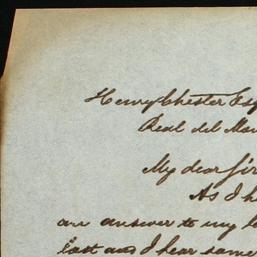 Henry Chester Esq
Real del Mon
My dear Sir
As I h
an answer to my le
last and I hear some